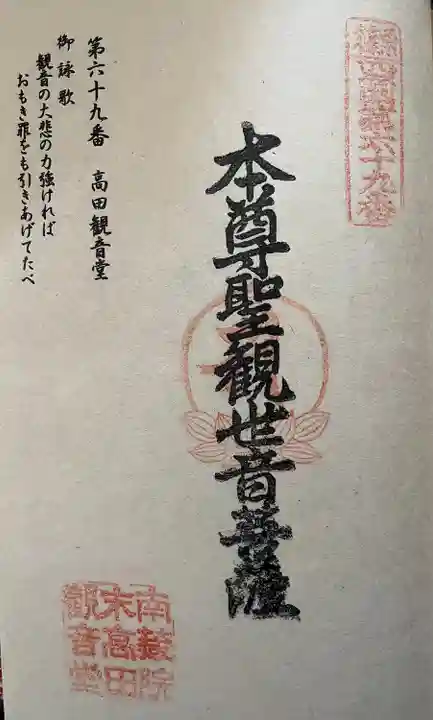 西国第六十九番
本尊聖観世音菩薩
第六十九番 高田観音堂
御詠歌
観音の大悲の力強ければ
おもき罪をも引きあげてたべ
南蔵院
末高田
観音堂